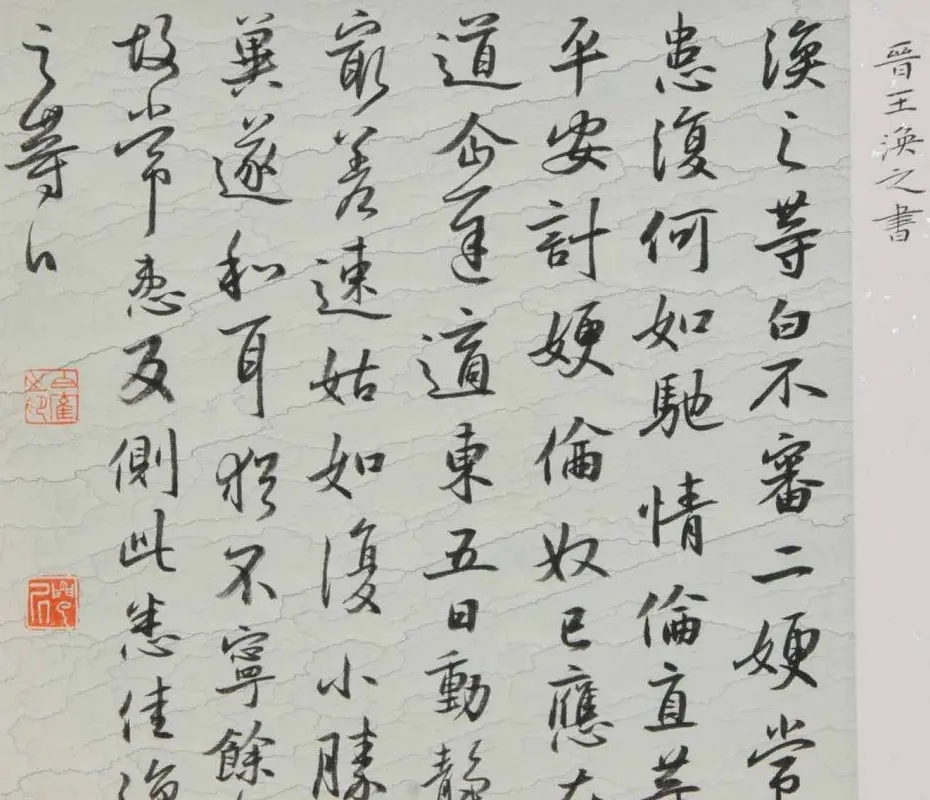 晉王渙之書
渙之等白不審二嫂常
患復何如馳情倫直等
平安計嫂倫奴已應在
道企遲適東五日動靜
冣差速姑如復小勝
冀遂和耳猶不寧餘
故常患反側此悉佳渙
之等白